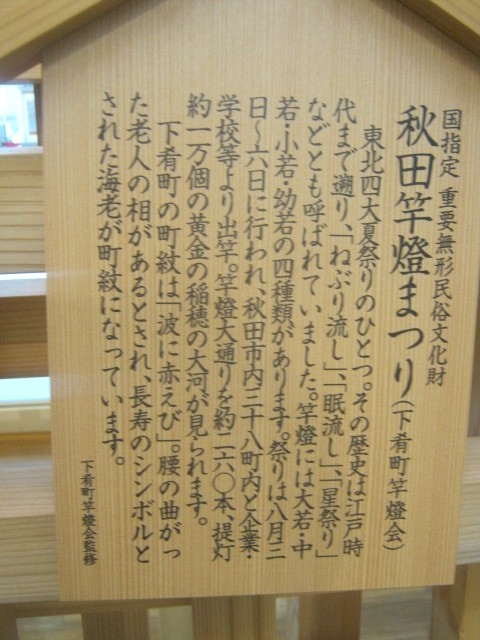 国指定 重要無形民俗文化財
秋田竿燈まつり(下肴町竿燈会)
東北四大夏祭りのひとつ。その歴史は江戸時
代まで遡り、「ねぶり流し」、「眠流し」、「星祭り」
などとも呼ばれていました。竿燈には大若・中
若・小若・幼若の四種類があります。祭りは八月三
日〜六日に行われ、秋田市内三十八町内と企業・
学校等より出竿。竿燈大通りを約二六〇本、提灯
約一万個の黄金の稲穂の大河が見られます。
下肴町の町紋は「波に赤えび」。腰の曲がっ
た老人の相があるとされ、長寿のシンボルと
された海老が町紋になっています。
下肴町竿燈会監修